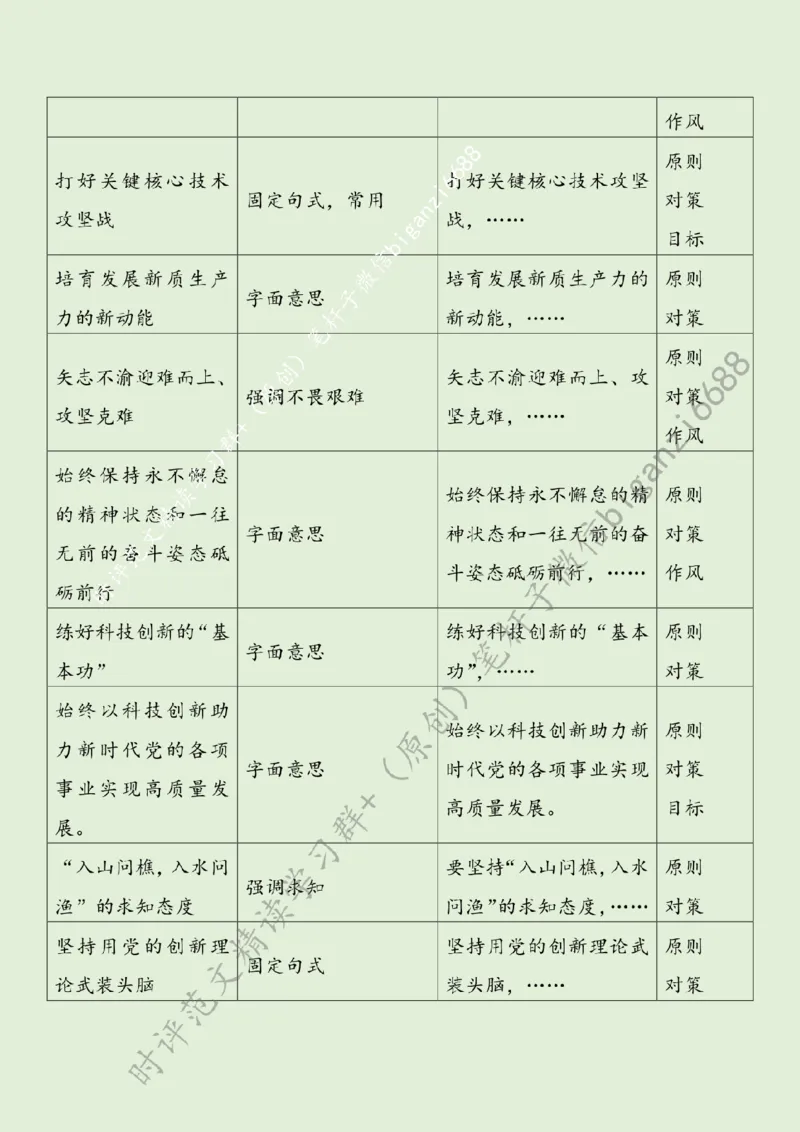 作风
打好关键核心技术
攻坚战
固定句式，常用
打好关键核心技术攻坚
战，……
原则
对策
目标
培育发展新质生产
力的新动能
字面意思
培育发展新质生产力的
新动能，……
原则
对策
矢志不渝迎难而上、
攻坚克难
强调不畏艰难
矢志不渝迎难而上、攻
坚克难，……
原则
对策
作风
始终保持永不懈怠
的精神状态和一往
无前的奋斗姿态砥
砺前行
字面意思
始终保持永不懈怠的精
神状态和一往无前的奋
斗姿态砥砺前行，……
原则
对策
作风
练好科技创新的“基
本功”
字面意思
练好科技创新的“基本
功”，……
原则
对策
始终以科技创新助
力新时代党的各项
事业实现高质量发
展。
字面意思
始终以科技创新助力新
时代党的各项事业实现
高质量发展。
原则
对策
目标
“入山问樵，入水问
渔”的求知态度
强调求知
要坚持“入山问樵，入水
问渔”的求知态度，……
原则
对策
坚持用党的创新理
论武装头脑
固定句式
坚持用党的创新理论武
装头脑，……
原则
对策
时评范文精读学习群+（原创）笔杆子微信biganzi6688
时评范文精读学习群+（原创）笔杆子微信biganzi6688